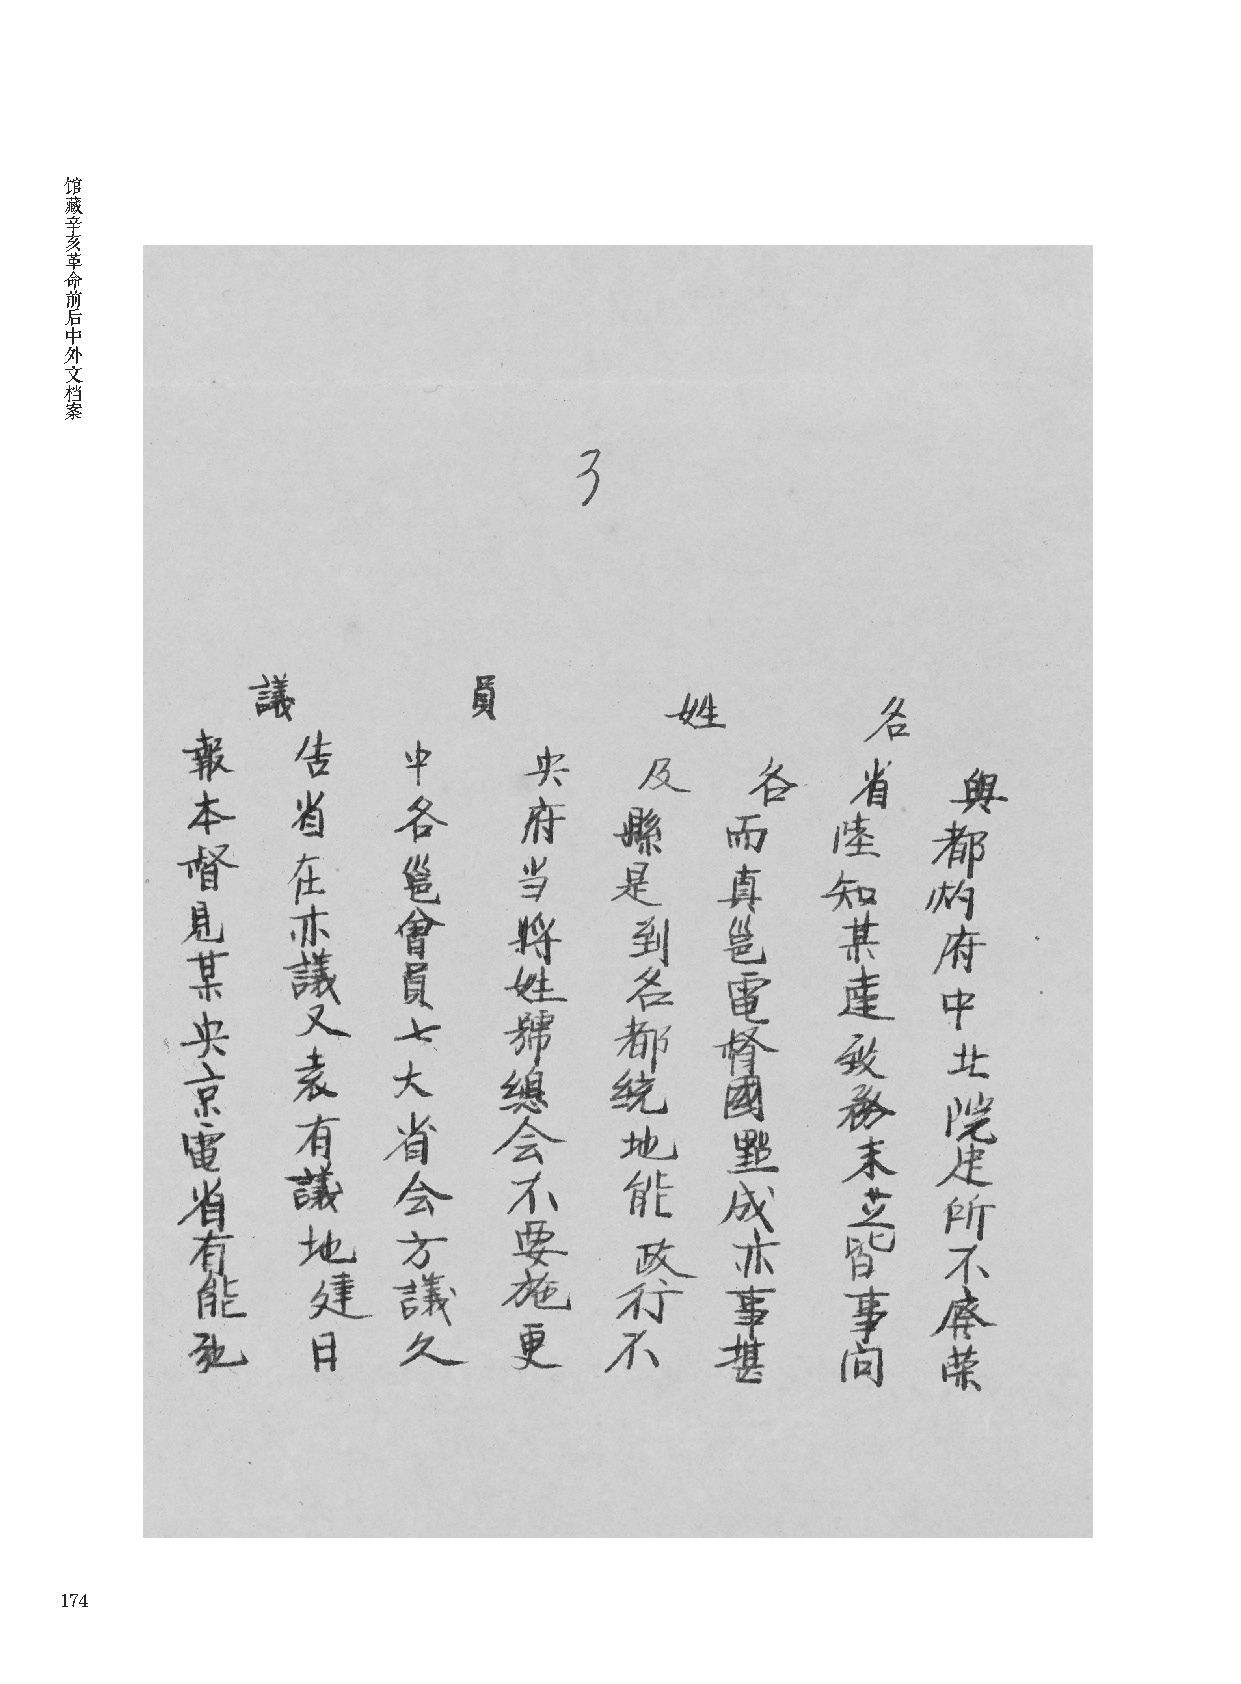 馆藏辛亥革命前后中外文档案
3
與都的府中北院走所不廢荣
各
省陸知某達致務未並皆事向
各而真邕電督國點成亦事堪
姓
及縣是到各都統地能政行不
央府当將姓號總会不要施更
員
中各邕會員七大省会方議久
告省在亦議又袁有議地建日
議
報本督見某央京電省有能
174